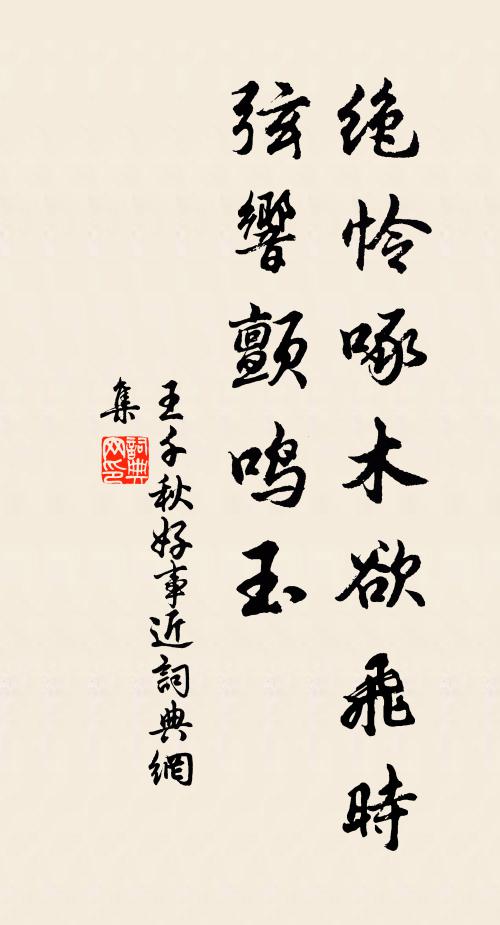 绝怜啄木欲飛時
弦響顫鸣玉
王千秋好事近詞典網
集
詞典
网印